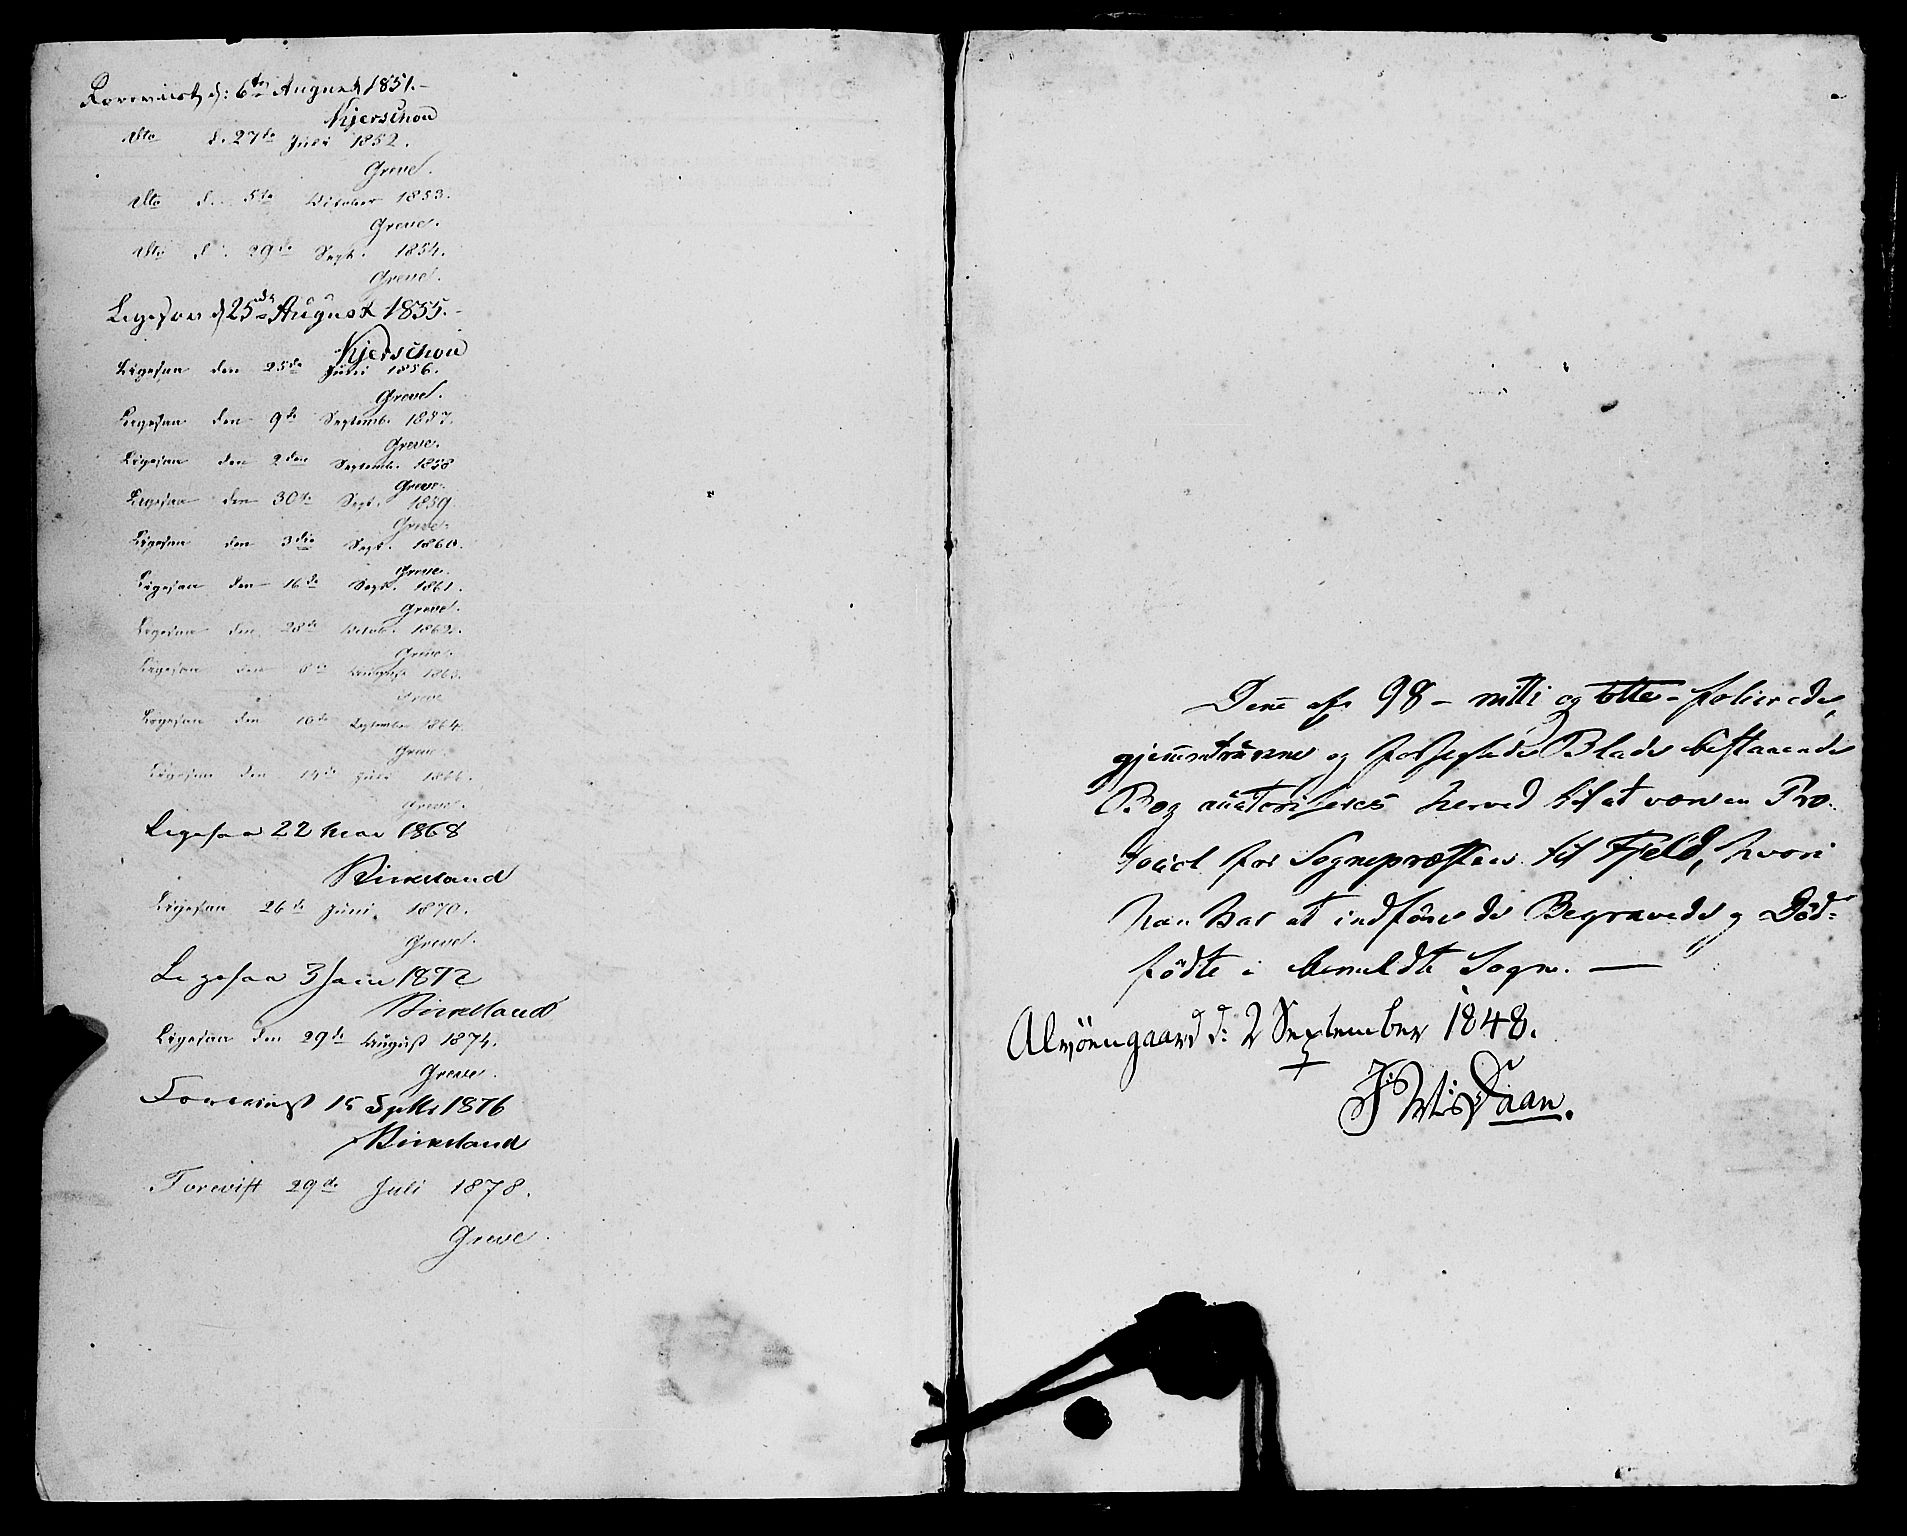 Foreviist d: 6te August 1851.-
Kjerschou
Dto d. 27de Juli 1852.
Greve.
Dto d. 5te October 1853.
Greve.
Dto d. 29de Sept. 1854.
Greve.
Ligesaa d 25de August 1855.-
Kjerschou
Ligesaa den 25de Juni 1856.
Greve.
Ligesaa den 9de Septemb. 1857.
Greve.
Ligesaa den 2den Septemb. 1858
Greve.
Ligesaa den 30te Sept. 1859.
Greve.
Ligesaa den 3die Sept. 1860.
Greve.
Ligesaa den 16de Sept. 1861.
Greve.
Ligesaa den 28de Octob. 1862.
Greve.
Ligesaa den 8de August 1863.
Greve
Ligesaa den 10de September 1864.
Greve.
Ligesaa den 14de Juli 1866.
Greve.
Ligesaa 22 Mai 1868
Birkeland
Ligesaa 26de Juni 1870.
Greve.
Ligesaa 3 Juni 1872
Birkeland
Ligesaa den 29de August 1874.
Greve.
Foreviist 15 Septbr 1876
Birkeland
Forevist 29de Juli 1878.
Greve
Denne af 98 - nitti og otte - folierede,
gjennemtrukne og forseglede Blade bestaaende
Bog auctoriseres herved til at være en Pro-
tocol for Sognepræsten til Fjeld, hvori
han har at indføre de Begravede og Død-
fødte i bemeldte Sogn. —
Alvøengaard d: 2 September 1848.
J Neumann.